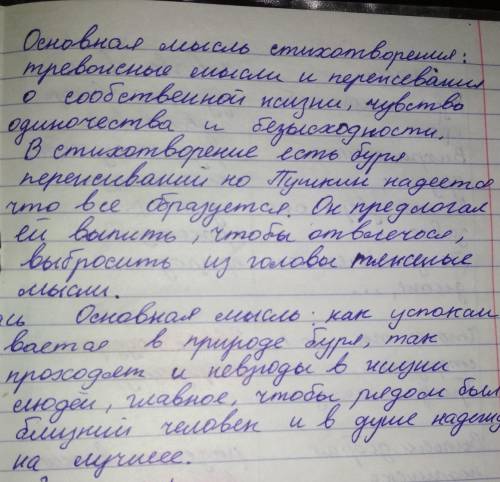 Основная мысль стихотворения:
тревожные мысли и переживания
о сообственной жизни, чувство
одиночества и безысходности.
В стихотворение есть буря
переживаний но Пушкин надеется
что все образуется. Он предлогал
ей выпить, чтобы отвлечося,
выбросить из головы тяжелые
мысли.
ась Основная мысль: как успокаи
вается в природе буря, так
проходят и невзгоды в жизни
людей, главное, чтобы рядом был
близкий человек и в душе надежд
на лучшее.